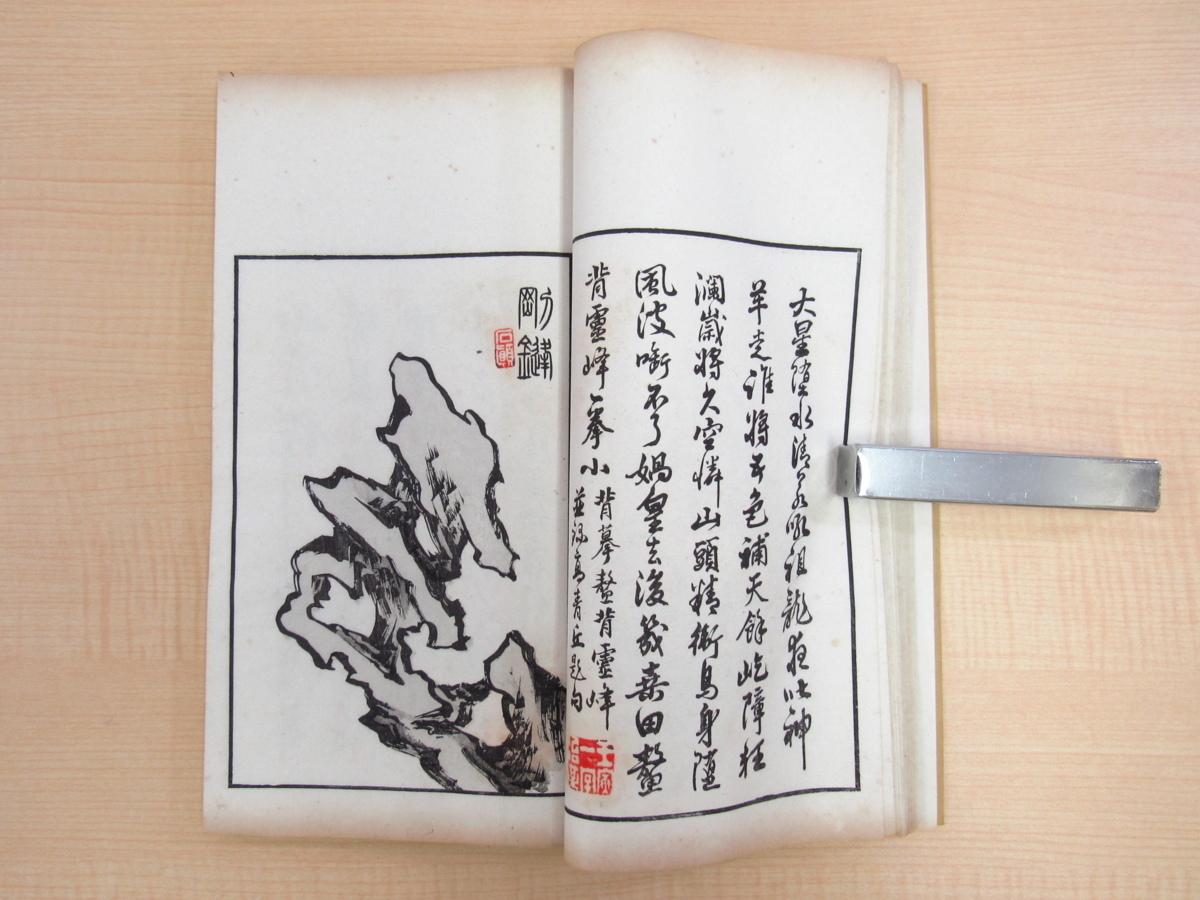 大星墮水清見底祖龍夜叱神
羊走誰將五色補天餘屹障狂
瀾歲將久空憐山頭精衛鳥身墮
風波啣不了媧皇去後幾桑田鰲
背靈峰一拳小
背摹鰲背靈峰
並錄高青丘題句
剛鍵